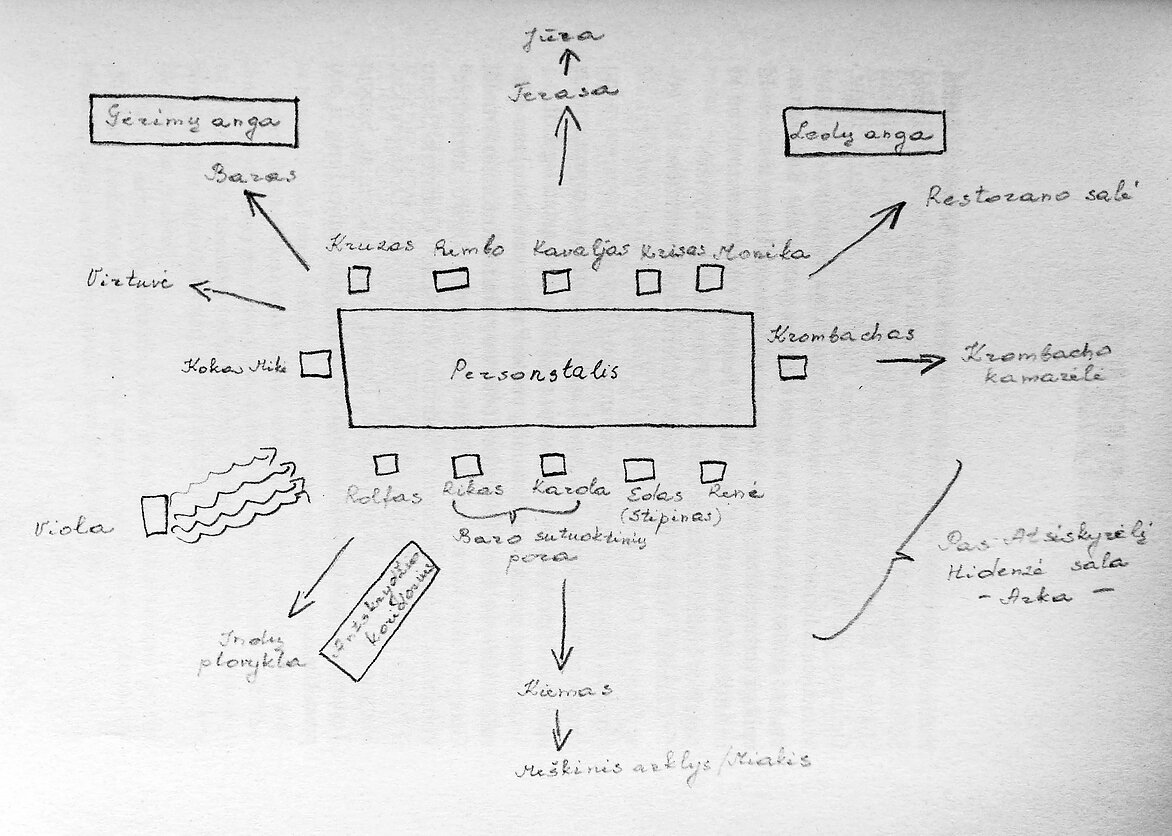 Jūra
Terasa
Gėrimų anga
Ledų anga
Baras
Restorano salė
Kruzas Rembo Kavaljas Krisas Monika
Virtuvė
Krombachas
Kokas Mikė
Personstalis
Krombacho
kamarėlė
Rolfas Rikas Karola Edas Renė
(Stipinas)
Viola
Baro sutuoktinių
pora
Pas Atsiskyrėlį
Hidenzė sala
- Arka -
koridorius
Indų
plovykla
Kiemas
Meškinis arklys/Miakis